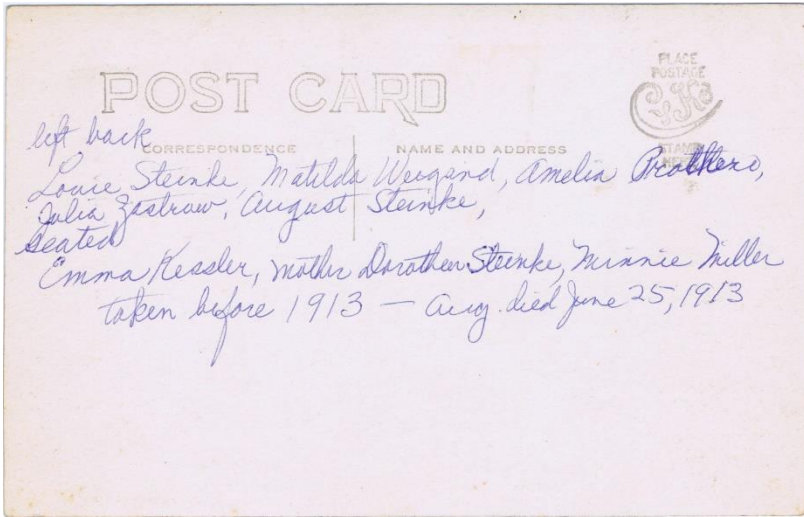 POST CARD
PLACE
POSTAGE
STAMP
HERE
left back
CORRESPONDENCE
NAME AND ADDRESS
Louie Steinke, Matilda Weigand, Amelia Prothero,
Julia Zastrow, August Steinke,
Seated
Emma Kessler, Mother Dorothea Steinke, Minnie Miller
taken before 1913 — Aug. died June 25, 1913